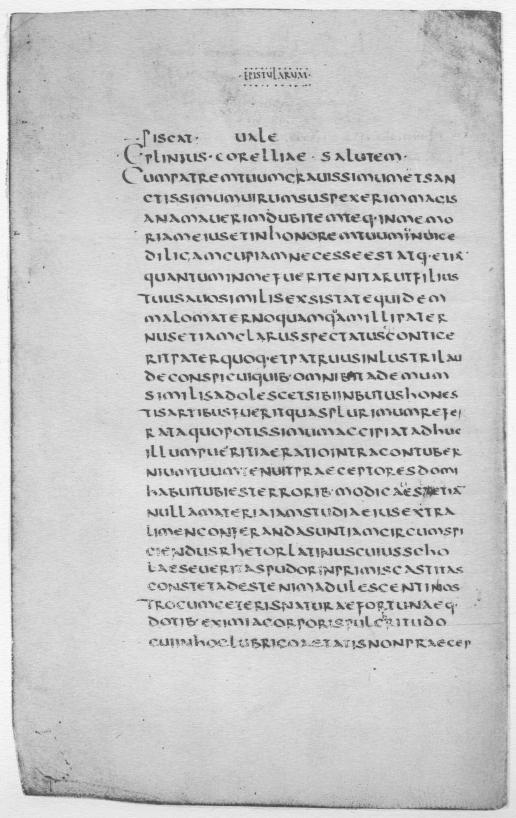 ·EPISTULARUM·
PISCAT· UALE
C PLINIUS· CORELLIAE· SALUTEM·
CUMPATREMTUUMGRAUISSIMUMETSAN
CTISSIMUMUIRUMSUSPEXERIMMAGIS
ANAMAUERIMDUBITEMTEQ·INMEMO
RIAMEIUSETINHONOREMTUUMINUICE
DILIGAMCUPIAMNECESSEESTATQ·ETIA
QUANTUMINMEFUERITENITARUTFILIUS
TUUSAUOSIMILISEXSISTATEQUIDEM
MALOMATERNOQUAMQAMILLIPATER
NUSETIAMCLARUSSPECTATUSCONTIGE
RITPATERQUOQ·ETPATRUUSINLUSTRILAU
DECONSPICUIQUIB·OMNIB·ITADEMUM
SIMILISADOLESCETSIBIINBUTUSHONES
TISARTIBUSFUERITQUASPLURIMUMREFER
RATAQUOPOTISSIMUMACCIPIATADHUC
ILLUMPUERITIAERATIOINTRACONTUBER
NIUMTUUMTENUITPRAECEPTORESDOMI
HABUITUBIESTERRORIB·MODICA
NULLAMATERIAIAMSTUDIAEIUSEXTRA
LIMENCONFERANDASUNTIAMCIRCUMSPI
CIENDUSRHETORLATINUSCUIUSSCHO
LAESEUERITASPUDORINPRIMISCASTITAS
CONSTETADESTENIMADULESCENTINOS
TROCUMCETERISNATURAEFORTUNAEQ·
DOTIB·EXIMIACORPORISPULCRITUDO
CUIINHOCLUBRICOAETATISNONPRAECEP